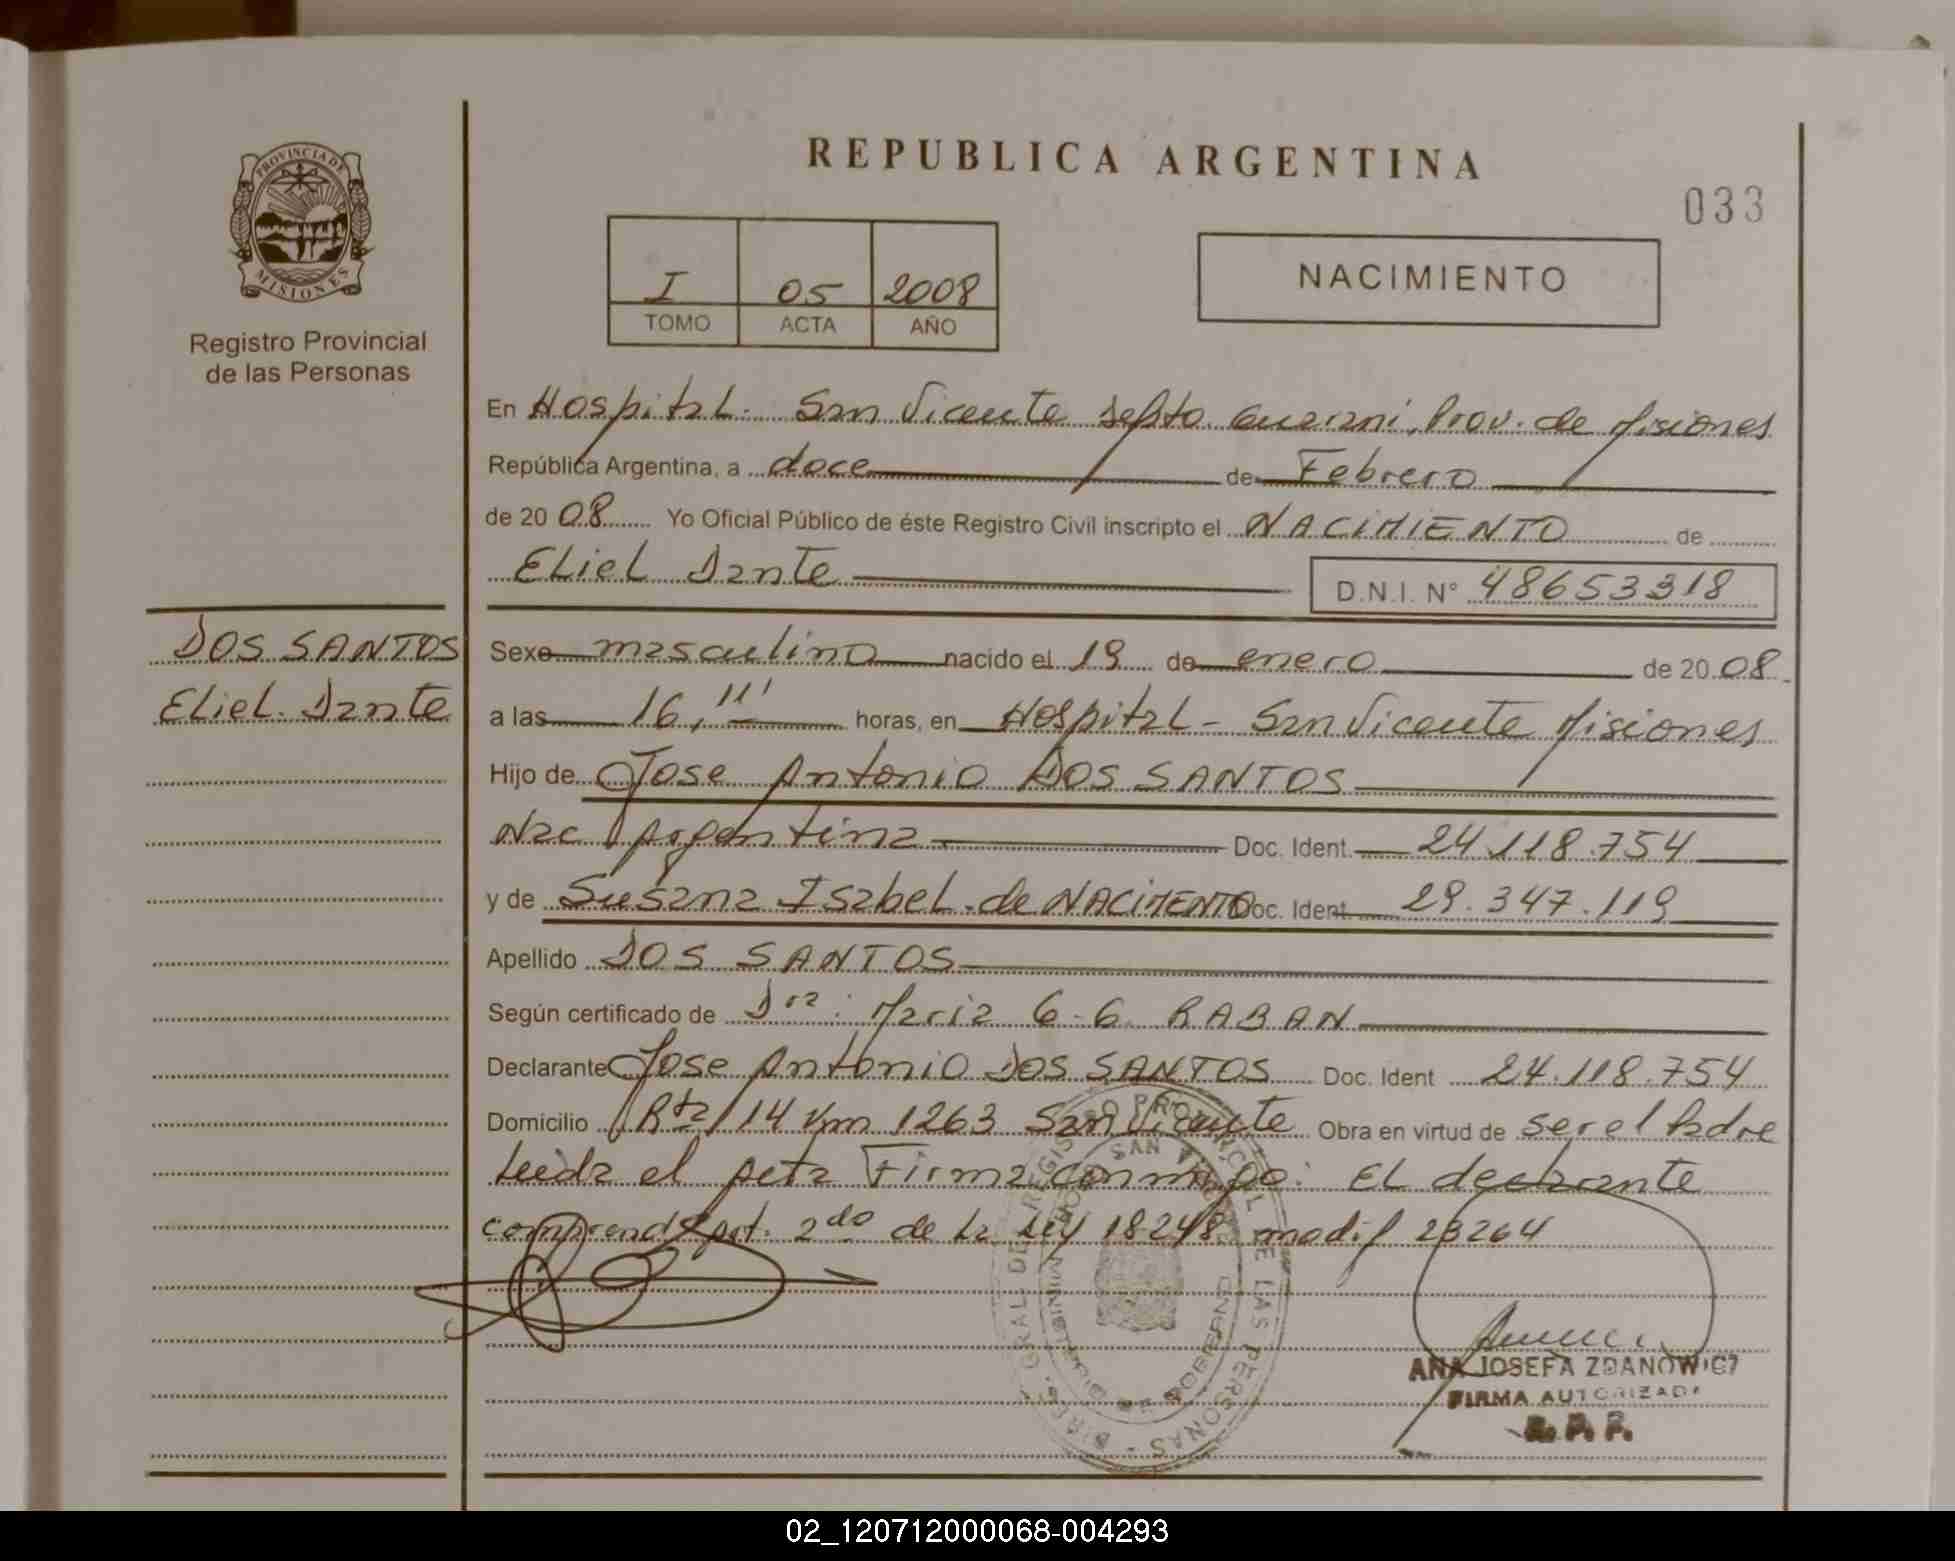 REPUBLICA ARGENTINA
033
PROVINCIA DE
MISIONES
Registro Provincial
de las Personas
I 05 2008
TOMO ACTA AÑO
NACIMIENTO
En Hospital. San Vicente Depto. Guarani, Prov. de Misiones
República Argentina, a doce de Febrero
de 2008 Yo Oficial Público de éste Registro Civil inscripto el NACIMIENTO de
Eliel Dante D.N.I. N° 48653318
DOS SANTOS
Eliel. Dante
Sexo masculino nacido el 19 de enero de 2008
a las 16, horas, en Hospital - San Vicente Misiones
Hijo de Jose Antonio DOS SANTOS
Nac Argentina Doc. Ident. 24.118.754
y de Susana Isabel. de NACIMENTO Doc. Ident. 29.347.119
Apellido DOS SANTOS
Según certificado de Dra: Maria G. G. RABAN
Declarante Jose Antonio DOS SANTOS Doc. Ident 24.118.754
Domicilio Rta 14 Km 1263 San Vicente Obra en virtud de ser el Padre
Leida el Acta Firma conmigo: El declarante
comprende Art. 2do de la Ley 18248 modif 23264
ANA JOSEFA ZDANOWICZ
FIRMA AUTORIZADA
R. P. P.
02_120712000068-004293